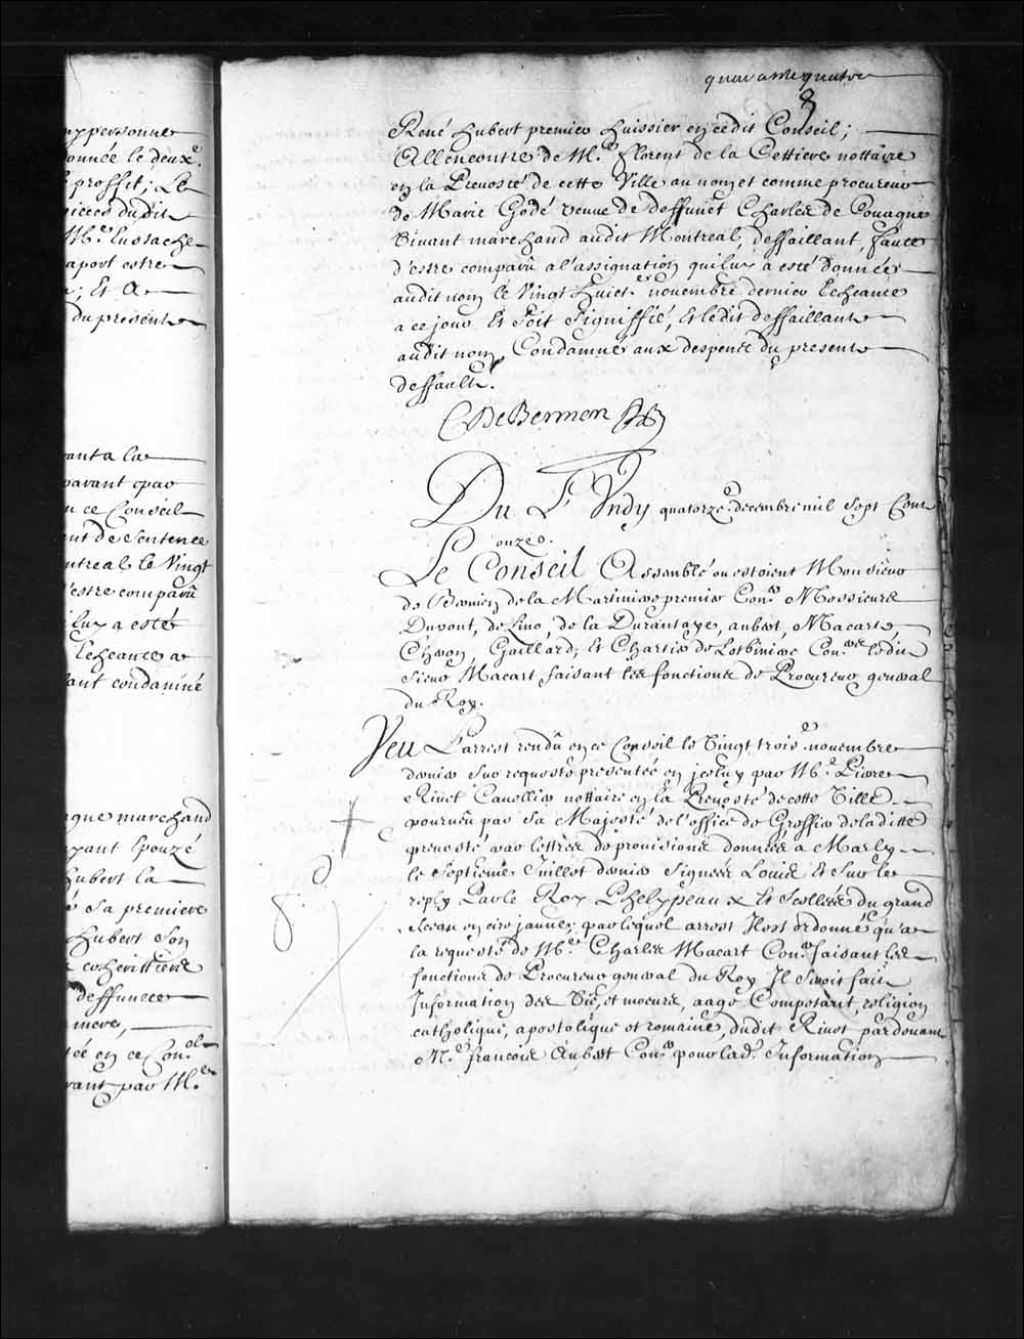 quaranteqquatre
8
René hubert premier huissier en cedit Conseil;
Allencontre de M.e florent de la Cettiere nottaire
en la Prevosté de cette Ville au nom et comme procureur
de Marie Godé veuve de deffunct Charles de Couagne
Vivant marchand audit Montreal, deffaillant, faute
d'estre comparû a l'assignation qui luy a esté donnée
audit nom le Vingt huict.e novembre dernier Escheante
a ce jour Et soit signiffié, Et ledit deffaillant
audit nom Condamné aux despens du present
deffault.
CDeBermen
Du Lundy quatorze.e decembre mil sept Cent
onze.
Le Conseil Assemblé ou estoient Monsieur
de Bermen de la Martiniere premier Con.er Messieurs
Dupont, de Lino, de la Durantaye, aubert, Macart
Cheron, Gaillard, Et Chartier de Lotbiniere Con.ers ledit
sieur Macart faisant les fonctions de Procureur general
du Roy.
Veu L'arrest rendû en ce Conseil le Vingt trois.e novembre
dernier sur requeste presentée en jceluy par M.e Pierre
Rivet Cavellier nottaire en la Prevosté de cette Ville
pourveu par Sa Majesté de l'office de Greffier de laditte
prevosté par lettres de provisions données a Marly
le septieme Juillet dernier signées Louis Et sur le
reply Par le Roy Phelypeaux Et scellées du grand
sceau en cire jaune; par lequel arrest Il est ordonné qu'a
la requeste de M.e Charles Macart Con.er faisant les
fonctions de Procureur general du Roy Il seroit fait
Information des Vie, et moeurs, aage Competant, religion
catholique, apostolique et romaine, dudit Rivet pardevant
M.e francois Aubert Con.er pour lad.e Information
yppersonne
onnée le deux.e
proffit; Le
pieces dudit
M.e Eustache
aport estre
; Et A
du present
ant a la
parant par
n ce Conseil
nt de sentence
ntreal le Vingt
'estre comparû
luy a esté
Escheante a
ant condamné
gne marchand
yant Epouzé
hubert la
sa premiere
hubert son
coheritiere
deffuncte
mere,
ée en ce Con.el
rant par M.e